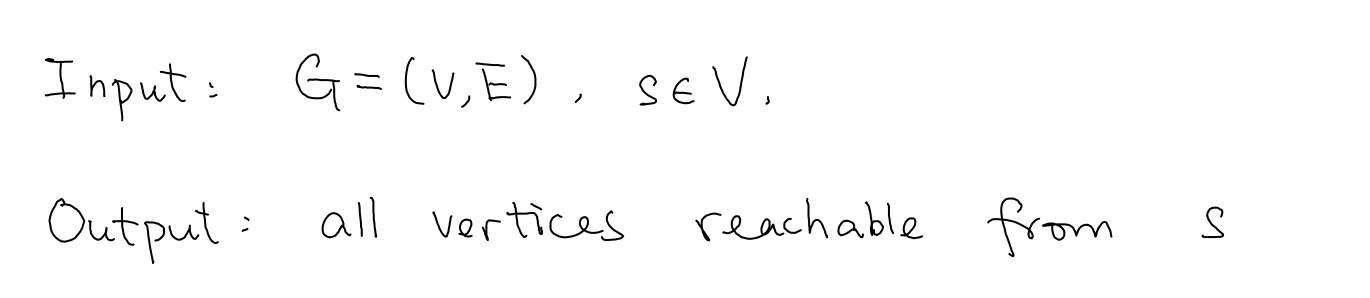 Input: G=(V,E), s∈V.
Output: all vertices reachable from s